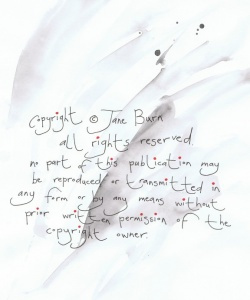 Copyright © Jane Burn
all rights reserved.
no part of this publication may
be reproduced or transmitted in
any form or by any means without
prior written permission of the
copyright owner.